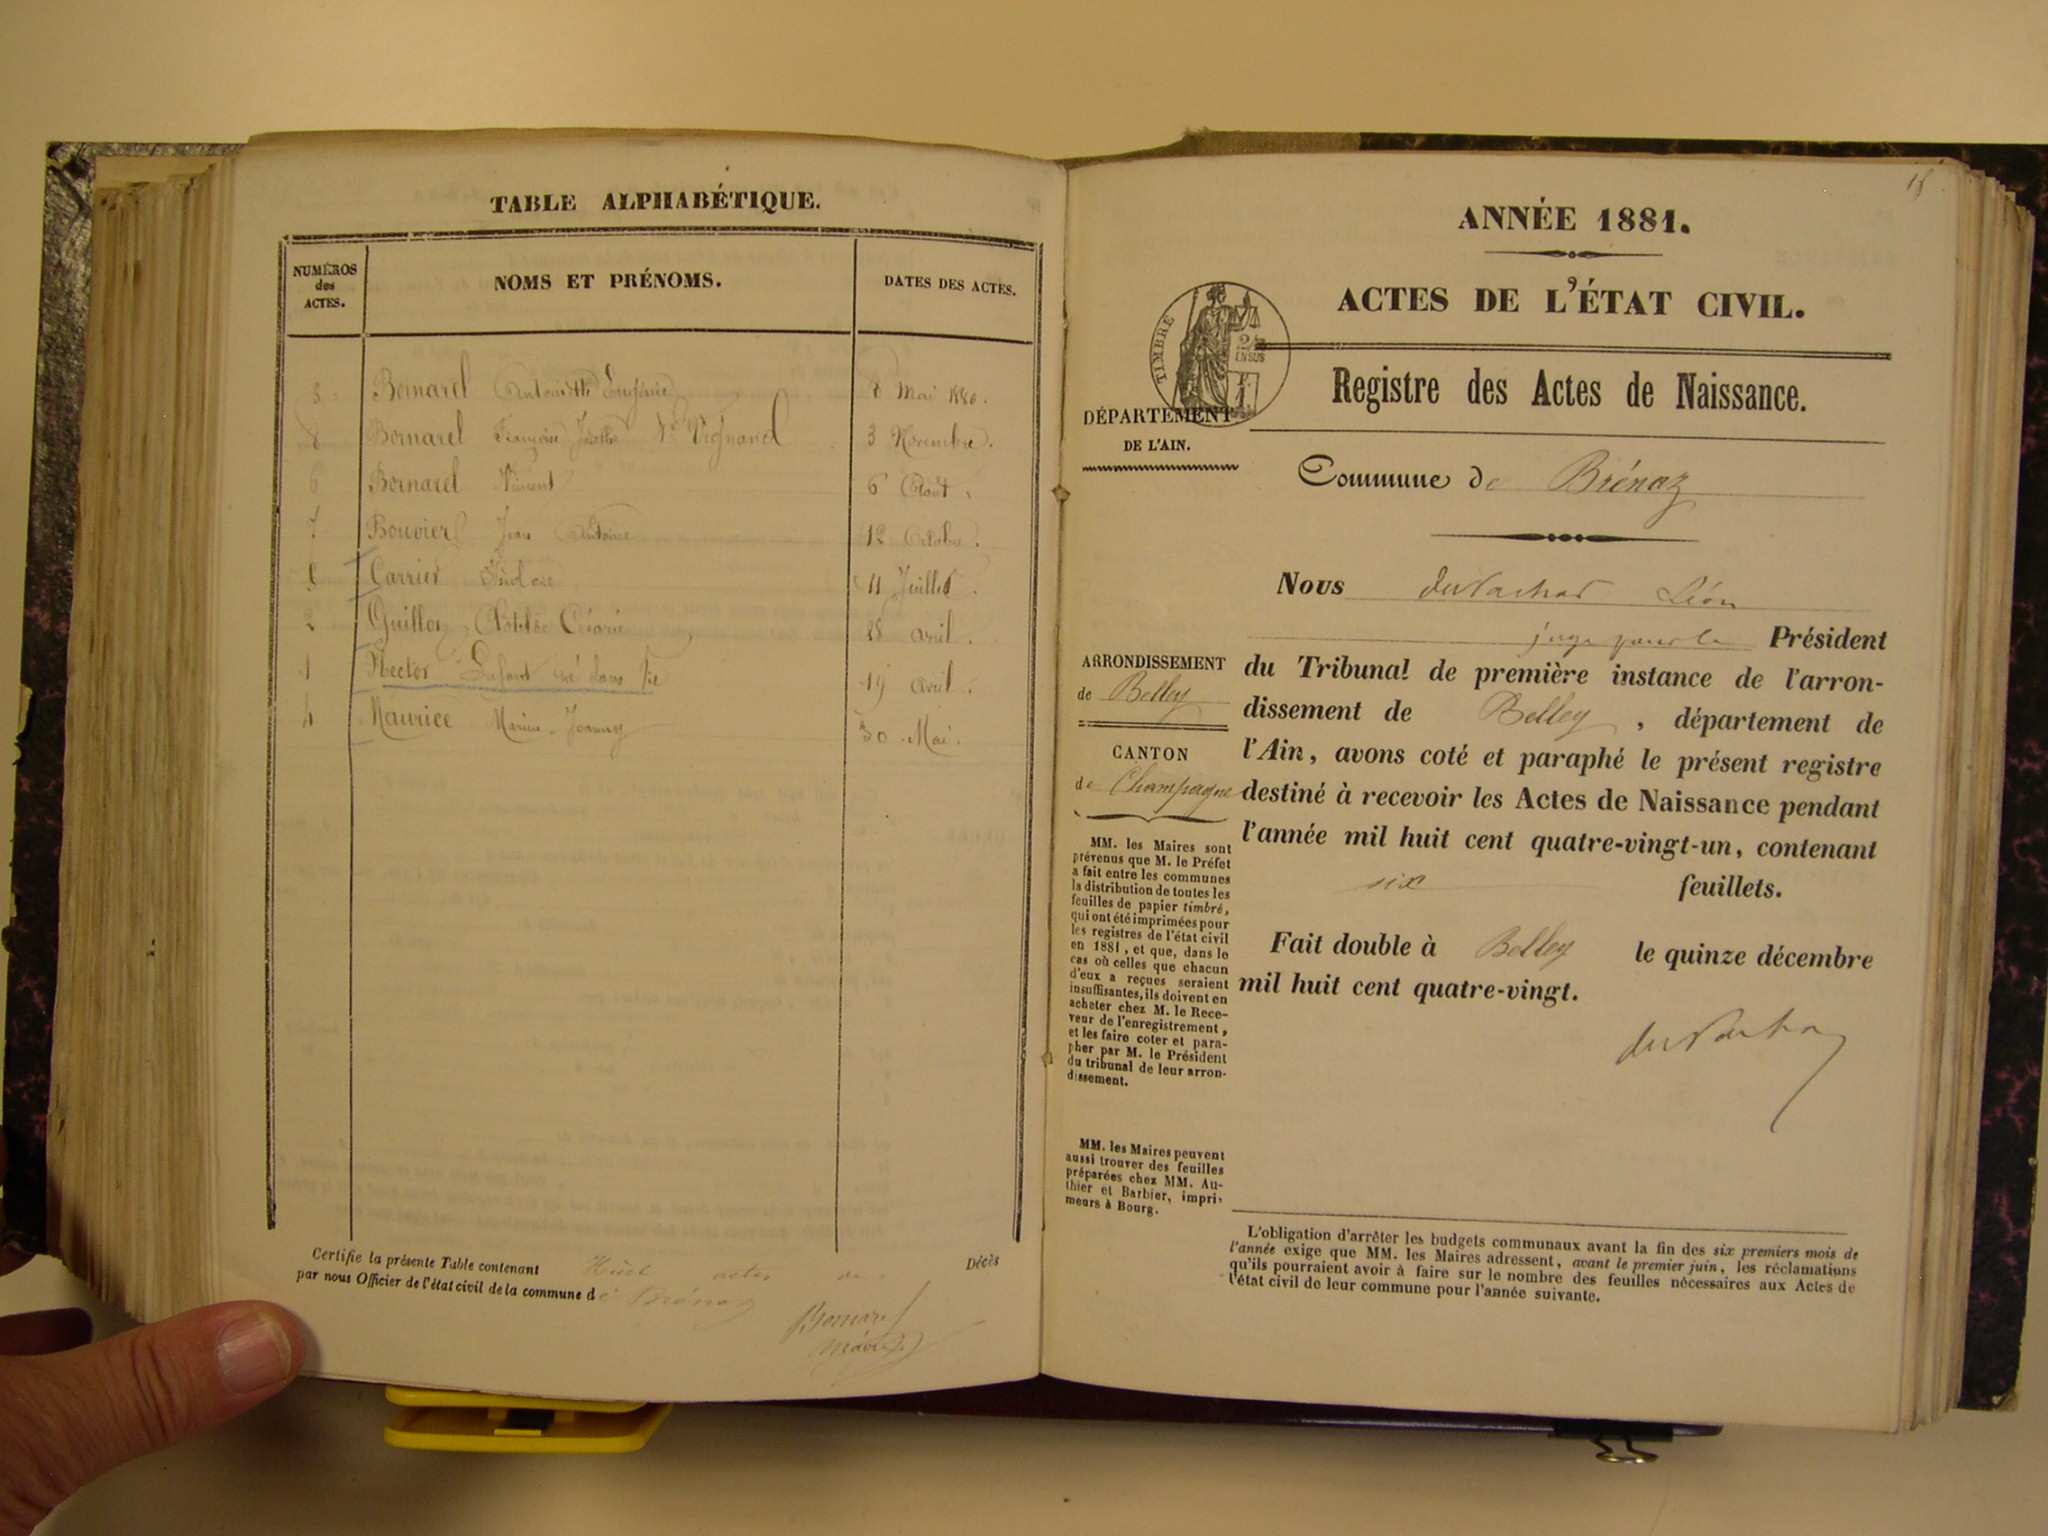 TABLE ALPHABÉTIQUE.
NUMÉROS
des
ACTES.
NOMS ET PRÉNOMS.
DATES DES ACTES.
3 Bornarel Antoinette Eugénie 8 Mai 1880.
8 Bornarel Françoise Josephte Ve Vignand 3 Novembre.
6 Bornarel Vincent 6 Août.
7 Bouvier Jean Antoine 12 Octobre.
5 Carrier 11 Juillet.
2 Guillon Clotilde Césarie 28 avril.
1 Hector Enfant né sans vie 19 avril.
4 Maurice Marie 30 Mai.
Certifie la présente Table contenant Huit actes de Décès
par nous Officier de l'état civil de la commune de Brénaz
Bornarel
18
ANNÉE 1881.
ACTES DE L'ÉTAT CIVIL.
TIMBRE
Registre des Actes de Naissance.
DÉPARTEMENT
DE L'AIN.
Commune de Brénaz
Nous Léon
juge pour le Président
du Tribunal de première instance de l'arron-
dissement de Belley, département de
l'Ain, avons coté et paraphé le présent registre
destiné à recevoir les Actes de Naissance pendant
l'année mil huit cent quatre-vingt-un, contenant
six feuillets.
Fait double à Belley le quinze décembre
mil huit cent quatre-vingt.
ARRONDISSEMENT
de Belley
CANTON
de Champagne
MM. les Maires sont
prévenus que M. le Préfet
a fait entre les communes
la distribution de toutes les
feuilles de papier timbré,
qui ont été imprimées pour
les registres de l'état civil
en 1881, et que, dans le
cas où celles que chacun
d'eux a reçues seraient
insuffisantes, ils doivent en
acheter chez M. le Rece-
veur de l'enregistrement,
et les faire coter et para-
pher par M. le Président
du tribunal de leur arron-
dissement.
MM. les Maires peuvent
aussi trouver des feuilles
préparées chez MM. Au-
thier et Barbier, impri-
meurs à Bourg.
L'obligation d'arrêter les budgets communaux avant la fin des six premiers mois de
l'année exige que MM. les Maires adressent, avant le premier juin, les réclamations
qu'ils pourraient avoir à faire sur le nombre des feuilles nécessaires aux Actes de
l'état civil de leur commune pour l'année suivante.